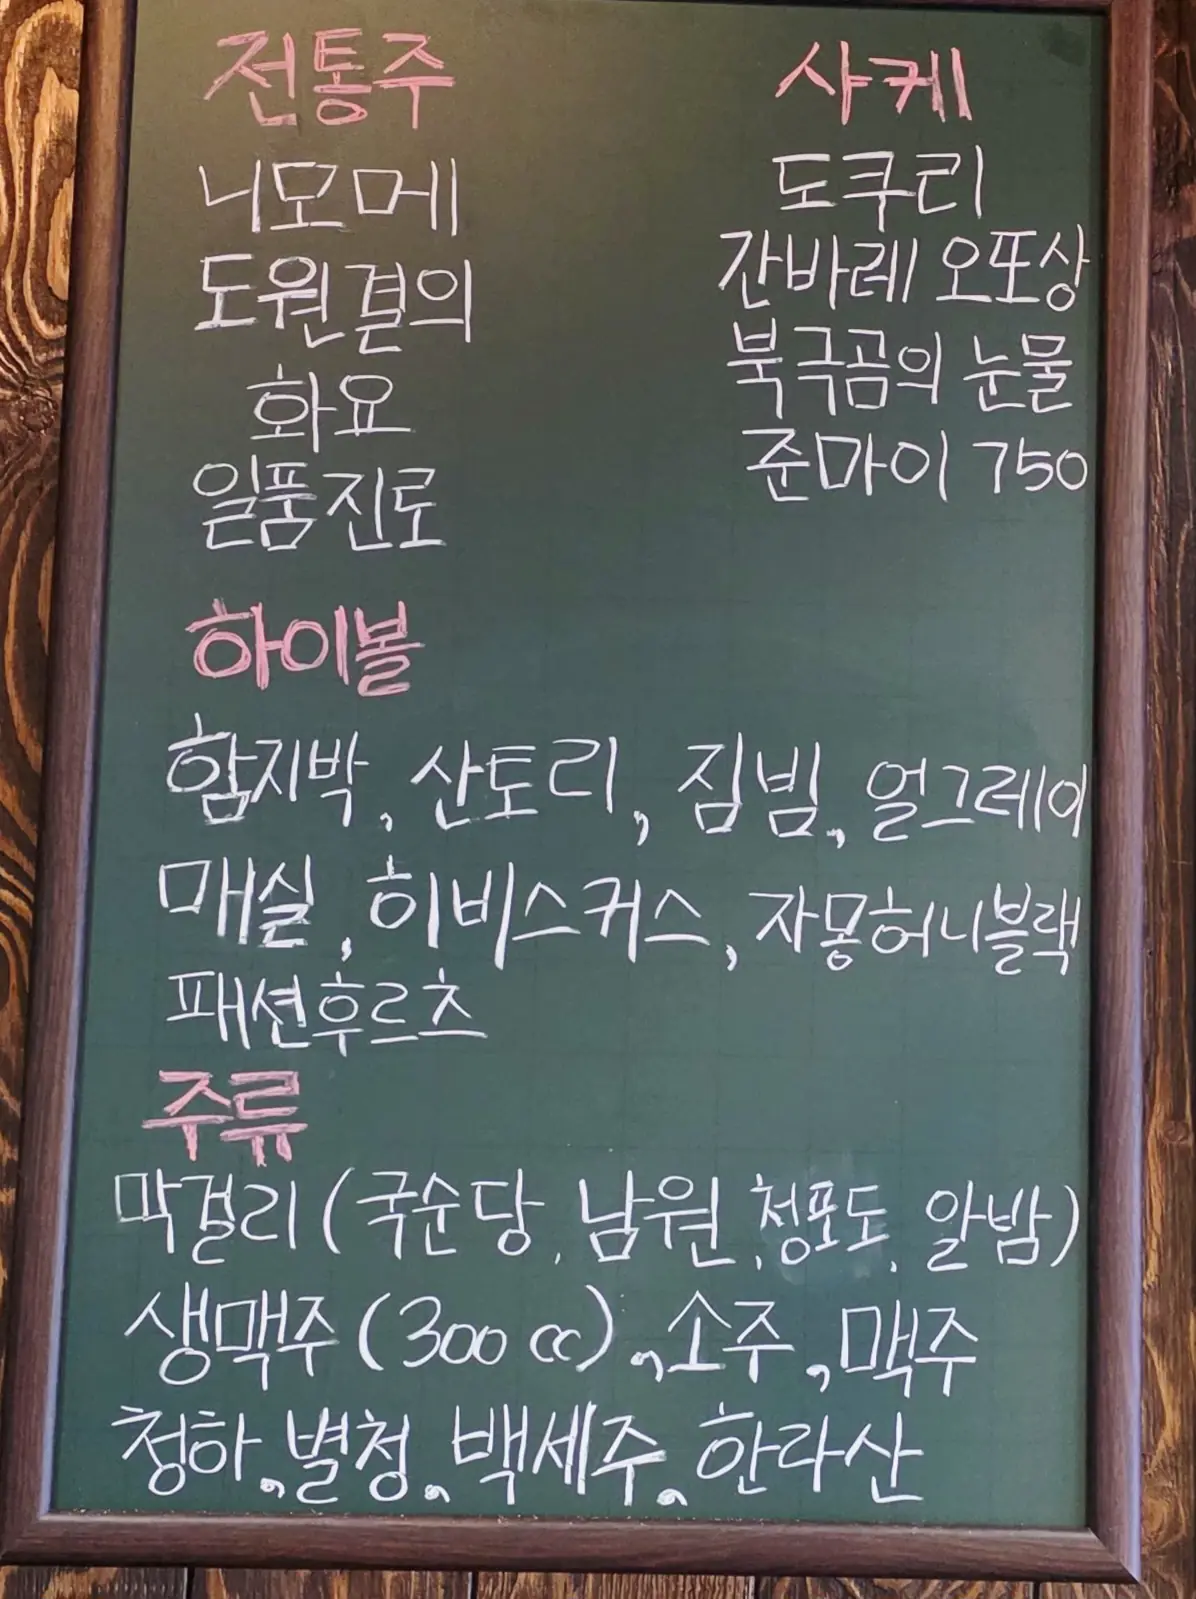 전통주
니모메
도원결의
화요
일품진로
사케
도쿠리
간바레 오또상
북극곰의 눈물
준마이 750
하이볼
함지박, 산토리, 짐빔, 얼그레이
매실, 히비스커스, 자몽허니블랙
패션후르츠
주류
막걸리(국순당, 남원, 청포도, 알밤)
생맥주(300cc), 소주, 맥주
청하, 별청, 백세주, 한라산